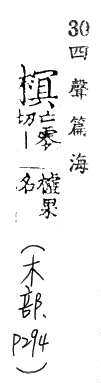 30 四聲篇海
亡零切｜樝果名
（木部.P294）